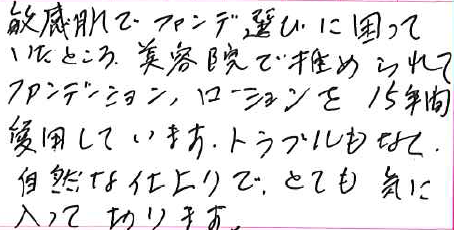 敏感肌で ファンデ選びに困って
いたところ、美容院で推められて
ファンデーション、ローションを 15年間
愛用しています。トラブルもなく、
自然な仕上りで、とても 気に
入って おります。